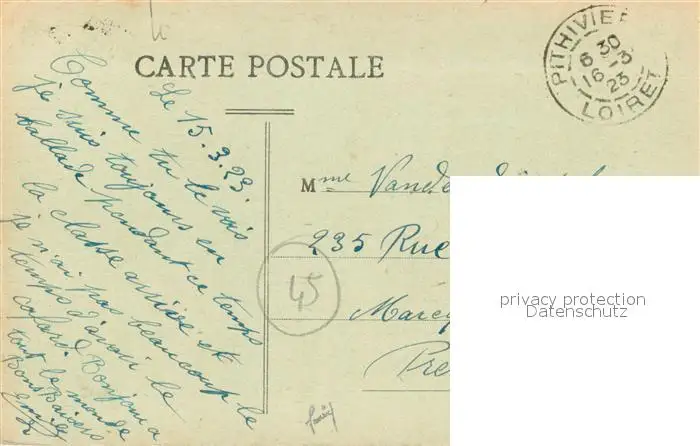 CARTE POSTALE
PITHIVIE
6 30
16-3
23
LOIRET
Le 15.3.23.
Comme tu le vois
je suis toujours en
ballade pendant ce temps
la classe arrive et
je n'ai pas beaucoup le
temps d'avoir le
cafard. Bonjour a
tout le monde
Bons Baisers
Mme Vande
235 Rue
Marcq
45
privacy protection
Datenschutz